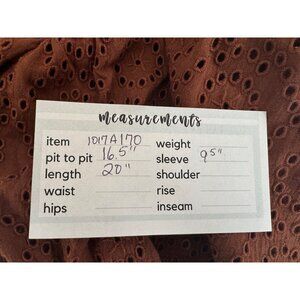 measurements
item 1017A170 weight
pit to pit 16.5" sleeve 9.5"
length 20" shoulder
waist rise
hips inseam